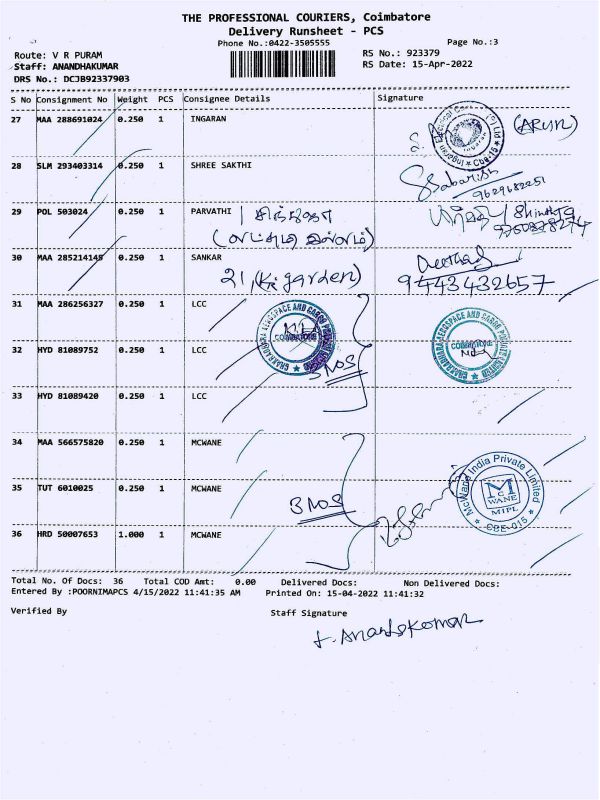 THE PROFESSIONAL COURIERS, Coimbatore
Delivery Runsheet - PCS
Phone No.:0422-3505555
Page No.:3
Route: V R PURAM
RS No.: 923379
Staff: ANANDHAKUMAR
RS Date: 15-Apr-2022
DRS No.: DCJB92337903
S No Consignment No Weight PCS Consignee Details Signature
27 MAA 288691024 0.250 1 INGARAN
(ARUN)
28 SLM 293403314 0.250 1 SHREE SAKTHI
Sabarish
9629682251
29 POL 503024 0.250 1 PARVATHI
30 MAA 285214145 0.250 1 SANKAR
21, (Kr garden)
9443432657
31 MAA 286256327 0.250 1 LCC
32 HYD 81089752 0.250 1 LCC
3 NOS
33 HYD 81089420 0.250 1 LCC
CHAKRADHARA AEROSPACE AND CARGO PRIVATE LIMITED
COIMBATORE
CHAKRADHARA AEROSPACE AND CARGO PRIVATE LIMITED
COIMBATORE
34 MAA 566575820 0.250 1 MCWANE
35 TUT 6010025 0.250 1 MCWANE
3 NOS
36 HRD 50007653 1.000 1 MCWANE
McWane India Private Limited
MCWANE
MIPL
CBE-015
Total No. Of Docs: 36 Total COD Amt: 0.00 Delivered Docs: Non Delivered Docs:
Entered By :POORNIMAPCS 4/15/2022 11:41:35 AM Printed On: 15-04-2022 11:41:32
Verified By Staff Signature
t. Anandakumar